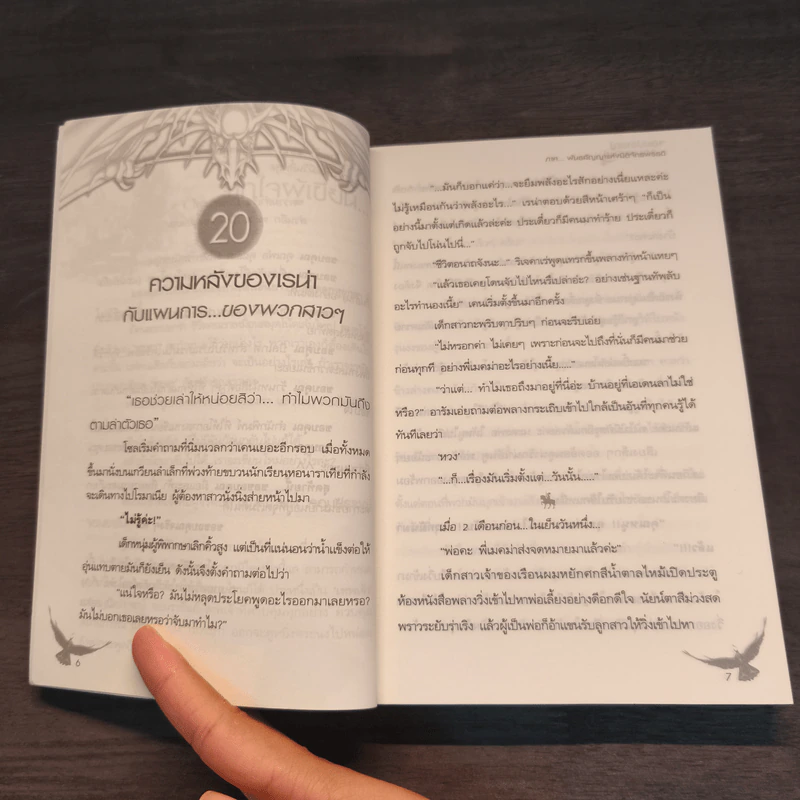 20
ความหลังของเรน่า
กับแผนการ...ของพวกสาวๆ
"เธอช่วยเล่าให้หน่อยสิว่า... ทำไมพวกมันถึง
ตามล่าตัวเธอ"
โซลเริ่มคำถามที่นิ่มนวลกว่าเคนเยอะอีกรอบ เมื่อทั้งหมด
ขึ้นมานั่งบนเกวียนลำเล็กที่พ่วงท้ายขบวนนักเรียนหอนาราเทียที่กำลัง
จะเดินทางไปโรมาเนีย ผู้ต้องหาสาวนั่งนิ่งส่ายหน้าไปมา
"ไม่รู้ค่ะ!"
เด็กหนุ่มผู้พิพากษาเลิกคิ้วสูง แต่เป็นที่แน่นอนว่าน้ำแข็งต่อให้
อุ่นแทบตายมันก็ยังเย็น ดังนั้นจึงตั้งคำถามต่อไปว่า
"แน่ใจหรือ? มันไม่หลุดประโยคพูดอะไรออกมาเลยหรอ?
มันไม่บอกเธอเลยหรอว่าจับมาทำไม?"
6
ภาค...
"...มันก็บอกแค่ว่า...จะยืมพลังอะไรสักอย่างเนี่ยแหละค่ะ
ไม่รู้เหมือนกันว่าพลังอะไร..." เรน่าตอบด้วยสีหน้าเศร้าๆ "ก็เป็น
อย่างนี้มาตั้งแต่เกิดแล้วล่ะค่ะ ประเดี๋ยวก็มีคนมาทำร้าย ประเดี๋ยวก็
ถูกจับไปโน่นไปนี่..."
"ชีวิตอนาถจังนะ..." รีเจคาเร่พูดแทรกขึ้นพลางทำหน้าแหยๆ
"แล้วเธอเคยโดนจับไปไหนรึเปล่าอ่ะ? อย่างเช่นฐานทัพลับ
อะไรทำนองเนี้ย" เคนเริ่มตั้งขึ้นมาอีกครั้ง
เด็กสาวกะพริบตาปริบๆ ก่อนจะรีบเอ่ย
"ไม่หรอกค่ำ ไม่เคยๆ เพราะก่อนจะไปถึงที่นั่นก็มีคนมาช่วย
ก่อนทุกที อย่างพี่เมคม่าอะไรอย่างเนี้ย....."
"ว่าแต่... ทำไมเธอถึงมาอยู่ที่นี่อ่ะ บ้านอยู่ที่เอเดนลาไม่ใช่
หรือ?" อารัมเอ่ยถามต่อพลางกระเถิบเข้าไปใกล้เป็นอันที่ทุกคนรู้ได้
ทันทีเลยว่า
'หวง'
"...ก็...เรื่องมันเริ่มตั้งแต่...วันนั้น....."
เมื่อ 2 เดือนก่อน...ในเย็นวันหนึ่ง...
"พ่อคะ พี่เมคม่าส่งจดหมายมาแล้วค่ะ"
เด็กสาวเจ้าของเรือนผมหยักศกสีน้ำตาลไหม้เปิดประตู
ห้องหนังสือพลางวิ่งเข้าไปหาพ่อเลี้ยงอย่างดีอกดีใจ นัยน์ตาสีม่วงสด
พราวระยับร่าเริง แล้วผู้เป็นพ่อก็อ้าแขนรับลูกสาวให้วิ่งเข้าไปหา
7